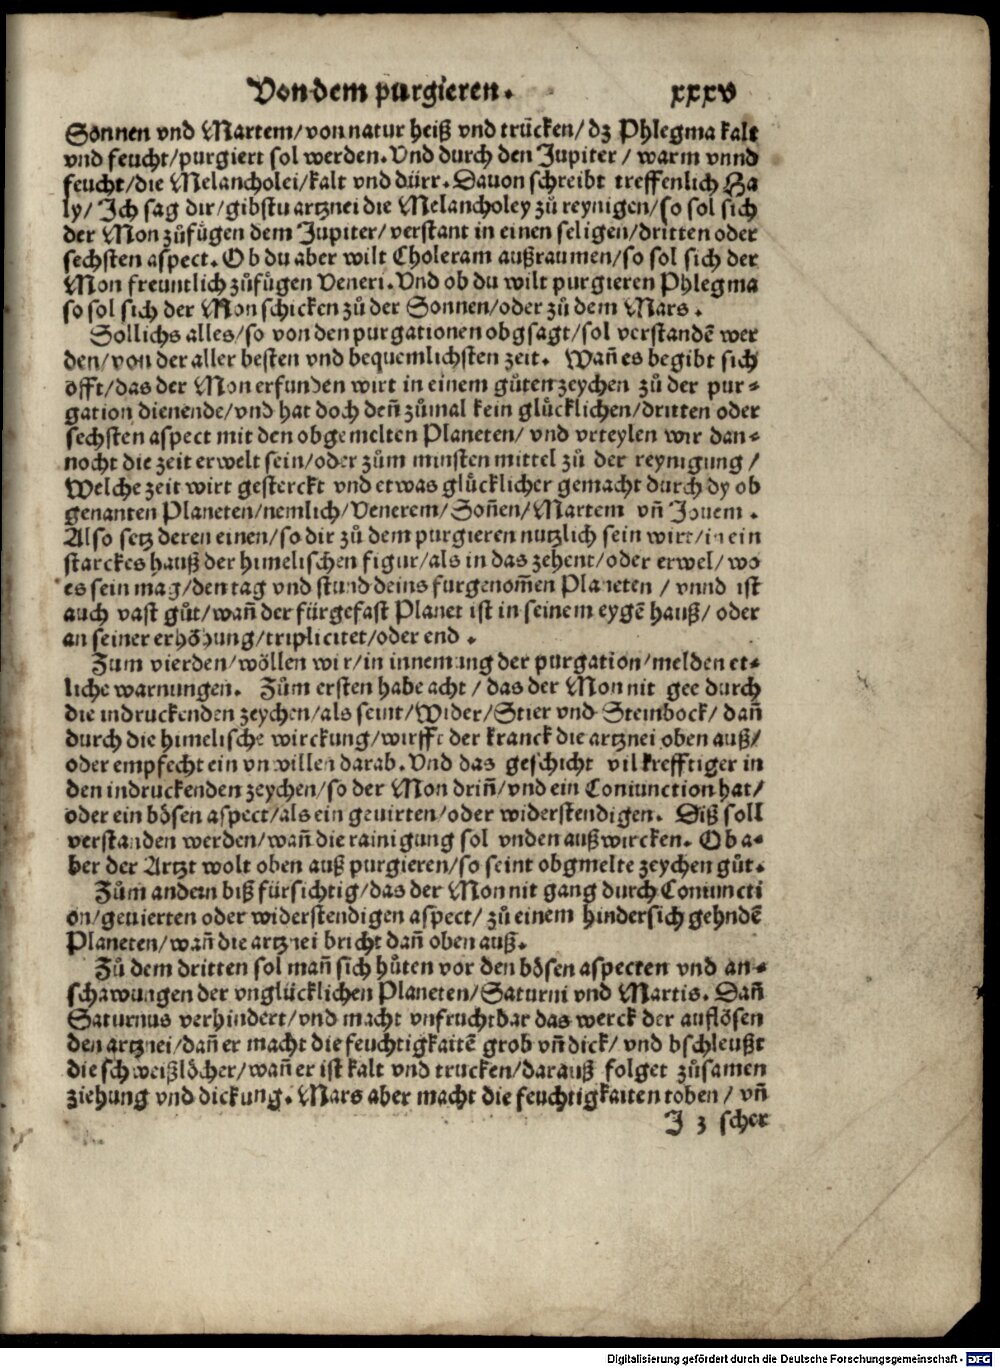 Von dem purgieren. xxxv
Sonnen vnd Martem/von natur heiß vnd trücken/dz Phlegma kalt
vnd feucht/purgiert sol werden. Vnd durch den Jupiter / warm vnnd
feucht/die Melancholei/kalt vnd dürr. Dauon schreibt treffenlich Ha
ly/ Ich sag dir/gibstu artznei die Melancholey zů reynigen/so sol sich
der Mon zůfůgen dem Jupiter/verstant in einen seligen/dritten oder
sechsten aspect. Ob du aber wilt Choleram außraumen/so sol sich der
Mon freuntlich zůfůgen Veneri. Vnd ob du wilt purgieren Phlegma
so sol sich der Mon schicken zů der Sonnen/oder zů dem Mars.
Sollichs alles/so von den purgationen obgsagt/sol verstandē wer
den/von der aller besten vnd bequemlichsten zeit. Wan̄ es begibt sich
offt/das der Mon erfunden wirt in einem gůten zeychen zů der pur-
gation dienende/vnd hat doch den̄ zůmal kein glücklichen/dritten oder
sechsten aspect mit den obgemelten Planeten/ vnd vrteylen wir dan-
nocht die zeit erwelt sein/oder zům minsten mittel zů der reynigung /
Welche zeit wirt gesterckt vnd etwas glücklicher gemacht durch dy ob
genanten Planeten/nemlich/Venerem/Son̄en/Martem vn̄ Jouem.
Also setz deren einen/so dir zů dem purgieren nutzlich sein wirt/in ein
starckes hauß der himelischen figur/als in das zehent/oder erwel/wo
es sein mag/den tag vnd stund deins furgenom̄en Planeten / vnnd ist
auch vast gůt/wan̄ der fürgefast Planet ist in seinem eygē hauß/ oder
an seiner erhöhung/triplicitet/oder end.
Zum vierden/wöllen wir/in innemung der purgation/melden et-
liche warnungen. Zům ersten habe acht / das der Mon nit gee durch
die indruckenden zeychen/als seint/Wider/Stier vnd Steinbock/ dan̄
durch die himelische wirckung/wirfft der kranck die artznei oben auß/
oder empfecht ein vnwillen darab. Vnd das geschicht vil krefftiger in
den indruckenden zeychen/so der Mon drin̄/vnd ein Coniunction hat/
oder ein bösen aspect/als ein geuirten/oder widerstendigen. Diß soll
verstanden werden/wan̄ die rainigung sol vnden außwircken. Ob a-
ber der Artzt wolt oben auß purgieren/so seint obgmelte zeychen gůt.
Zům andern biß fürsichtig/das der Mon nit gang durch Coniuncti
on/geuierten oder widerstendigen aspect/ zů einem hindersich gehndē
Planeten/wan̄ die artznei bricht dan̄ oben auß.
Zů dem dritten sol man̄ sich hůten vor den bösen aspecten vnd an-
schawungen der vnglücklichen Planeten/Saturni vnd Martis. Dan̄
Saturnus verhindert/vnd macht vnfruchtbar das werck der auflösen
den artznei/dan̄ er macht die feuchtigkaitē grob vn̄ dick/ vnd bschleußt
die schweißlöcher/wan̄ er ist kalt vnd trucken/darauß folget zůsamen
ziehung vnd dickung. Mars aber macht die feuchtigkaiten toben / vn̄
I 3 scher
Digitalisierung gefördert durch die Deutsche Forschungsgemeinschaft - DFG